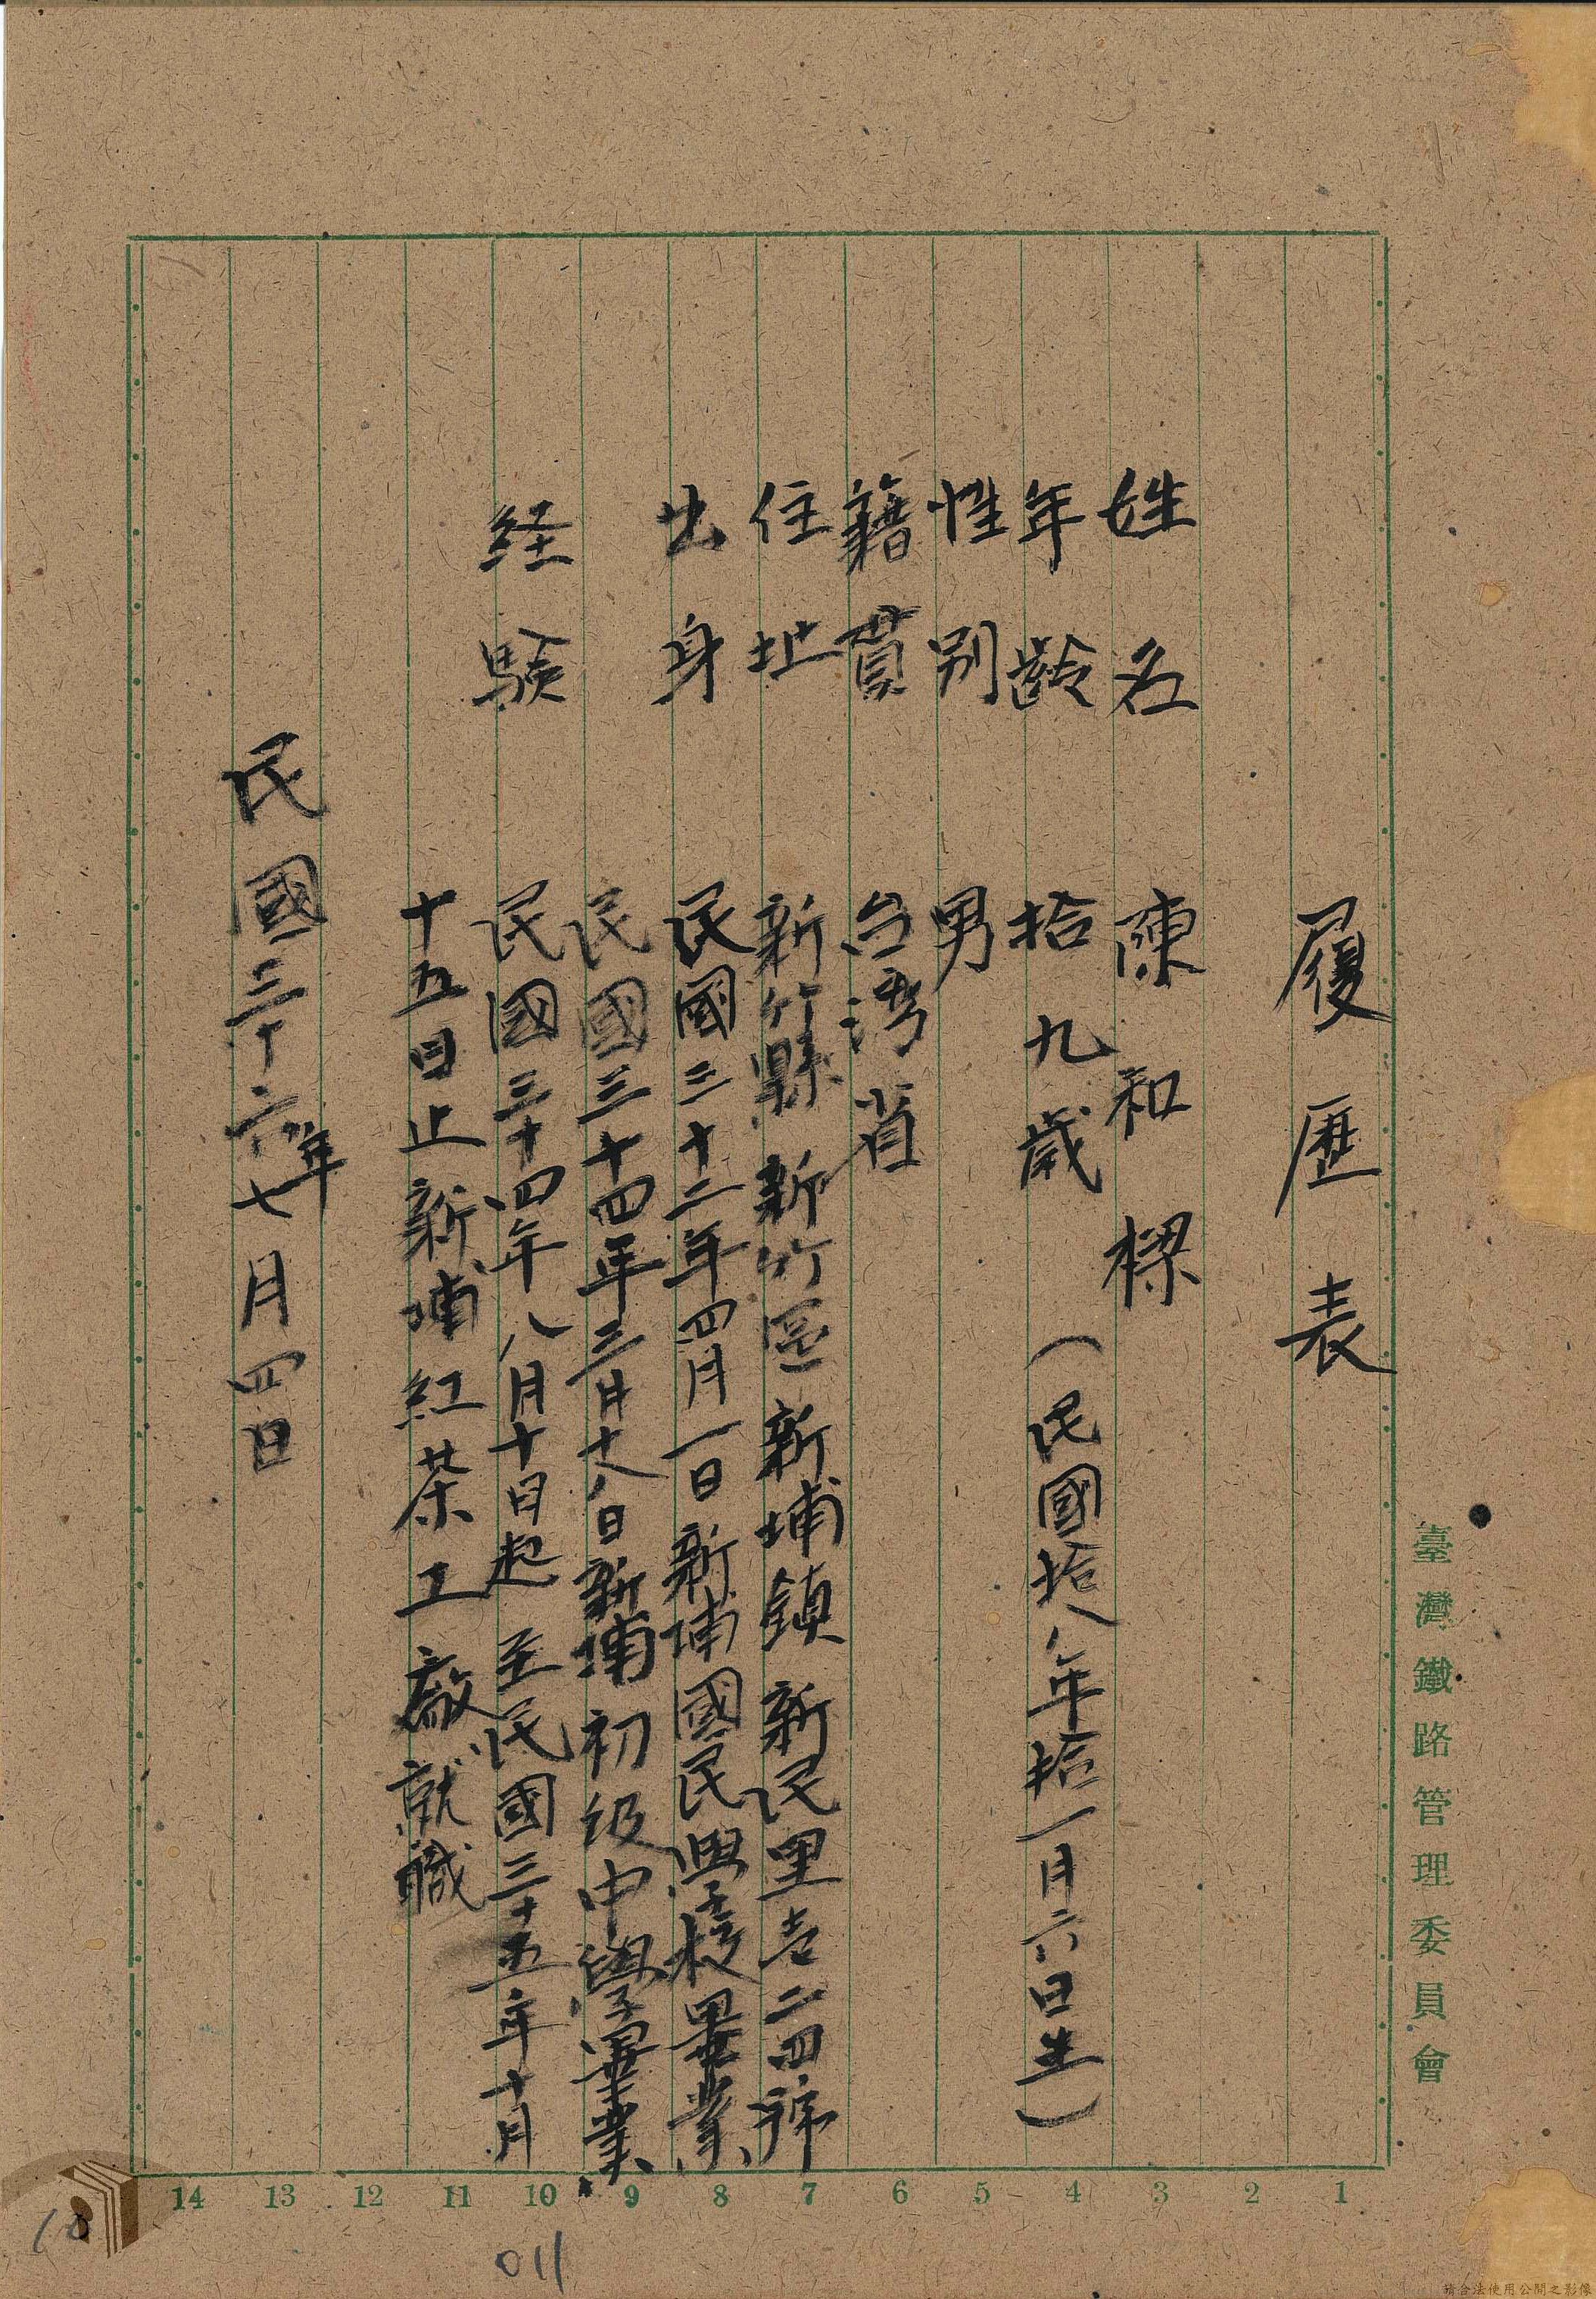 履歷表
姓名 陳和樑
年齡 拾九歲（民國拾八年拾一月六日生）
性別 男
籍貫 台湾省
住址 新竹縣新竹區新埔鎮新民里壱二四號
出身 民國三十二年四月一日新埔國民學校畢業
民國三十四年三月十八日新埔初級中學畢業
経験 民國三十四年八月十日起至民國三十五年十月
十五日止新埔紅茶工廠就職
民國三十六年七月四日
臺灣鐵路管理委員會
14 13 12 11 10 9 8 7 6 5 4 3 2 1
011
10
請合法使用公開之影像